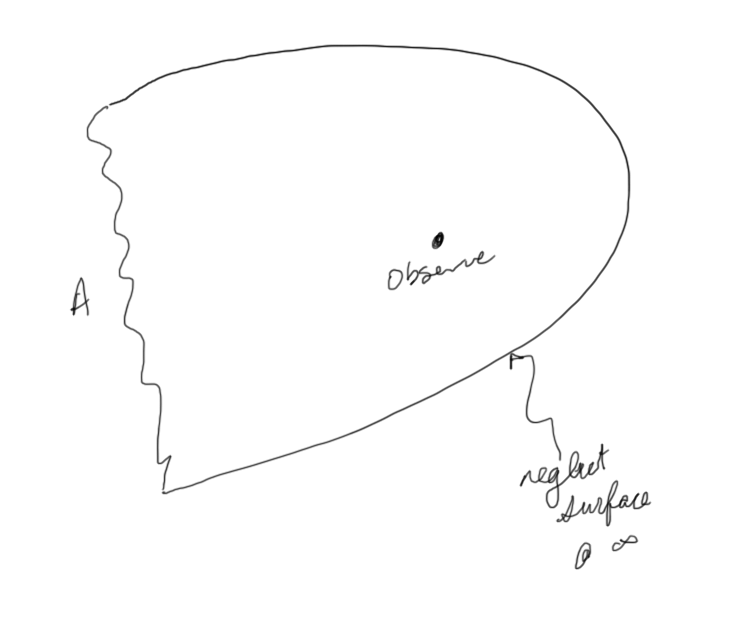 A
Observe
neglect
surface
@ ∞